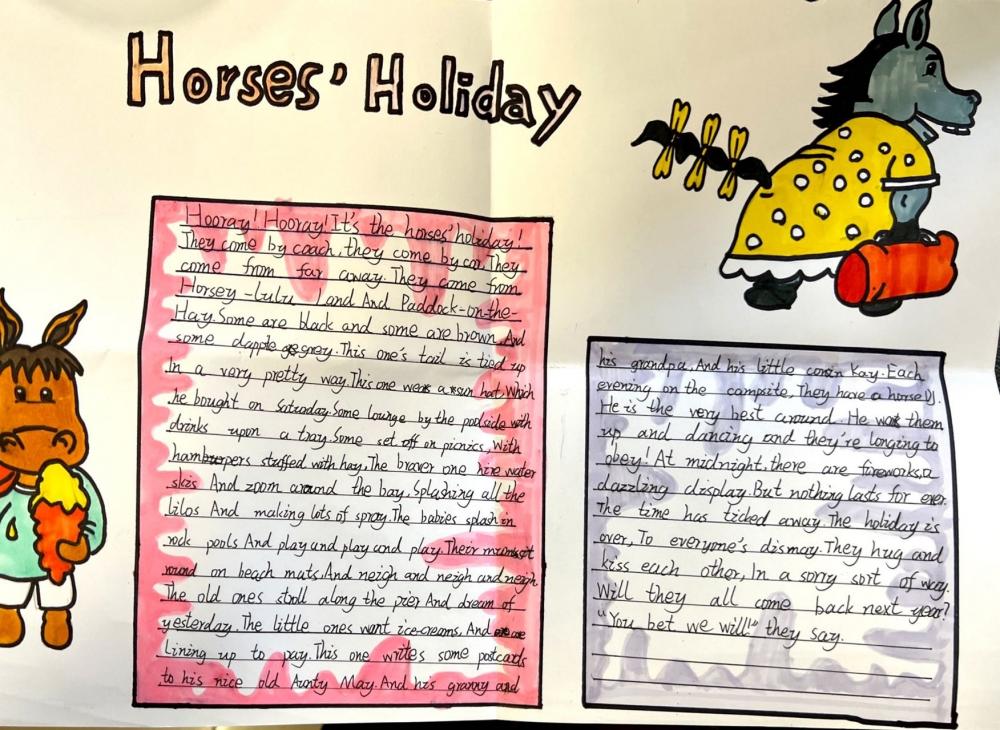 Horses' Holiday
Hooray! Hooray! It's the horses' holiday!
They come by coach, they come by car. They
come from far away. They come from
Horsey-Lulu Land And Paddock-on-the-
Hay. Some are black and some are brown. And
some dapple grey. This one's tail is tied up
In a very pretty way. This one wears a sun hat, Which
he bought on Saturday. Some lounge by the poolside with
drinks upon a tray. Some set off on picnics, with
stuffed with hay. The braver one hire water
skis And zoom around the bay, Splashing all the
lilos And making lots of spray. The babies splash in
rock pools And play and play and play. Their mums sit
round on beach mats. And neigh and neigh and neigh
The old ones stroll along the pier And dream of
yesterday. The little ones want ice-creams, And are
lining up to pay. This one writes some postcards
to his nice old Aunty May. And his granny and
his grandpa. And his little cousin Kay. Each
evening on the campsite, They have a horse DJ.
He is the very best around. He them
up and dancing and they're longing to
obey! At midnight, there are fireworks, a
dazzling display. But nothing lasts for ever.
The time has ticked away. The holiday is
over, To everyone's dismay. They hug and
kiss each other, In a sorry sort of way.
Will they all come back next year?
"You bet we will!" they say.